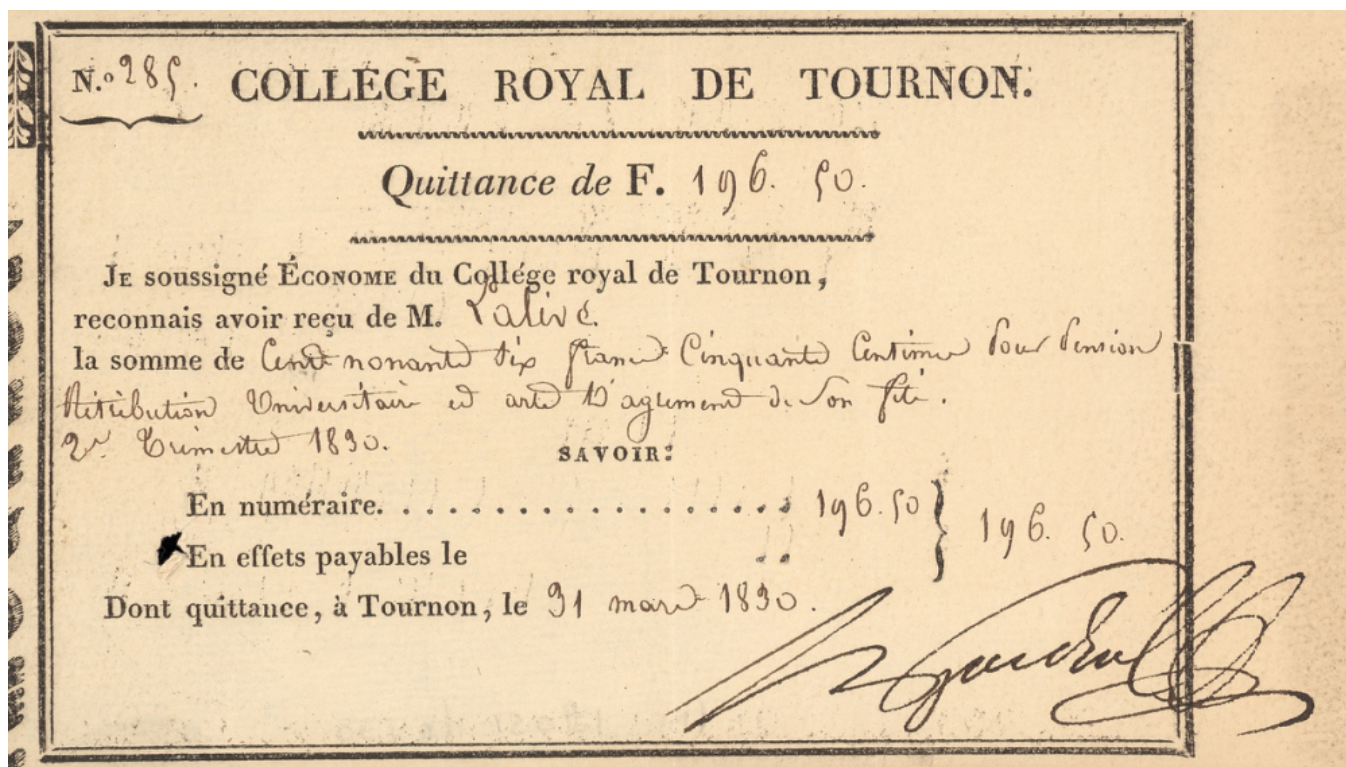 N.º 285. COLLÉGE ROYAL DE TOURNON.
Quittance de F. 196. 50.
JE soussigné ÉCONOME du Collége royal de Tournon,
reconnais avoir reçu de M. Lalive.
la somme de Cent nonante six francs Cinquante Centimes Pour Pension
Rétribution Universitaire et arts D'agrément de Son fils.
2e Trimestre 1830.
SAVOIR:
En numéraire. . . . . . . . . . . . . . . . . . 196.50 } 196. 50.
En effets payables le
Dont quittance, à Tournon, le 31 mars 1830.